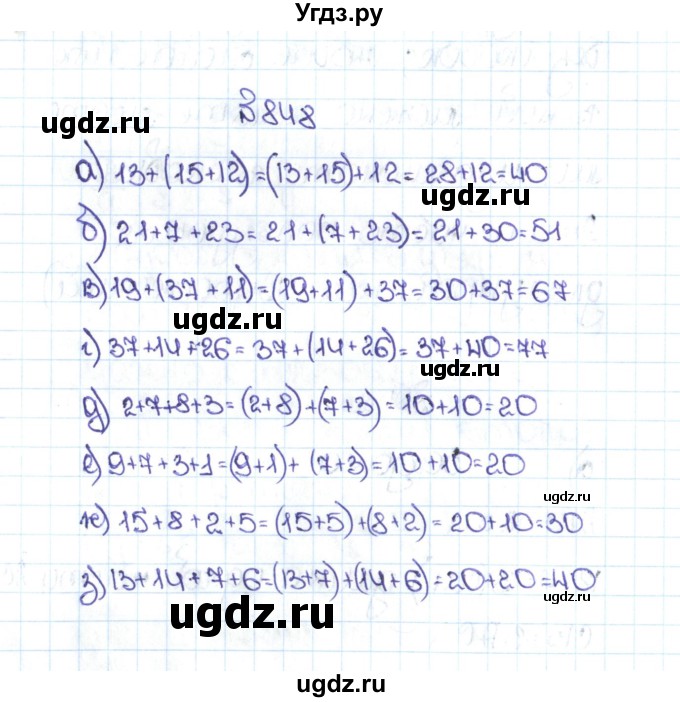 Угдз.ру
№848
ugdz.ru
а) 13+(15+12)=(13+15)+12=28+12=40
ugdz.ru
б) 21+7+23=21+(7+23)=21+30=51
в) 19+(37+11)=(19+11)+37=30+37=67
ugdz.ru
г) 37+14+26=37+(14+26)=37+40=77
ugdz.ru
д) 2+7+8+3=(2+8)+(7+3)=10+10=20
е) 9+7+3+1=(9+1)+(7+3)=10+10=20
ugdz.ru
ж) 15+8+2+5=(15+5)+(8+2)=20+10=30
з) 13+14+7+6=(13+7)+(14+6)=20+20=40
ugdz.ru
ugdz.ru
ugdz.ru